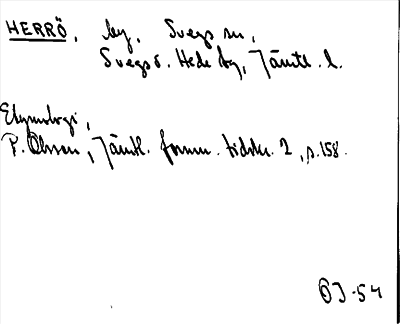 HERRÖ, by, Svegs sn,
Svegs o. Hede tg, Jämtl. l.
Etymologi,
P. Olsson, Jämtl. fornm. tidskr. 2, s. 158.
ÖJ-54